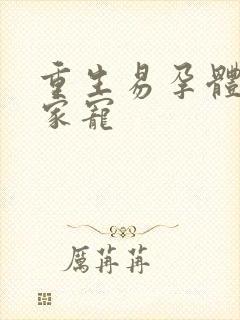 重生易孕體
家寵
厲苒苒